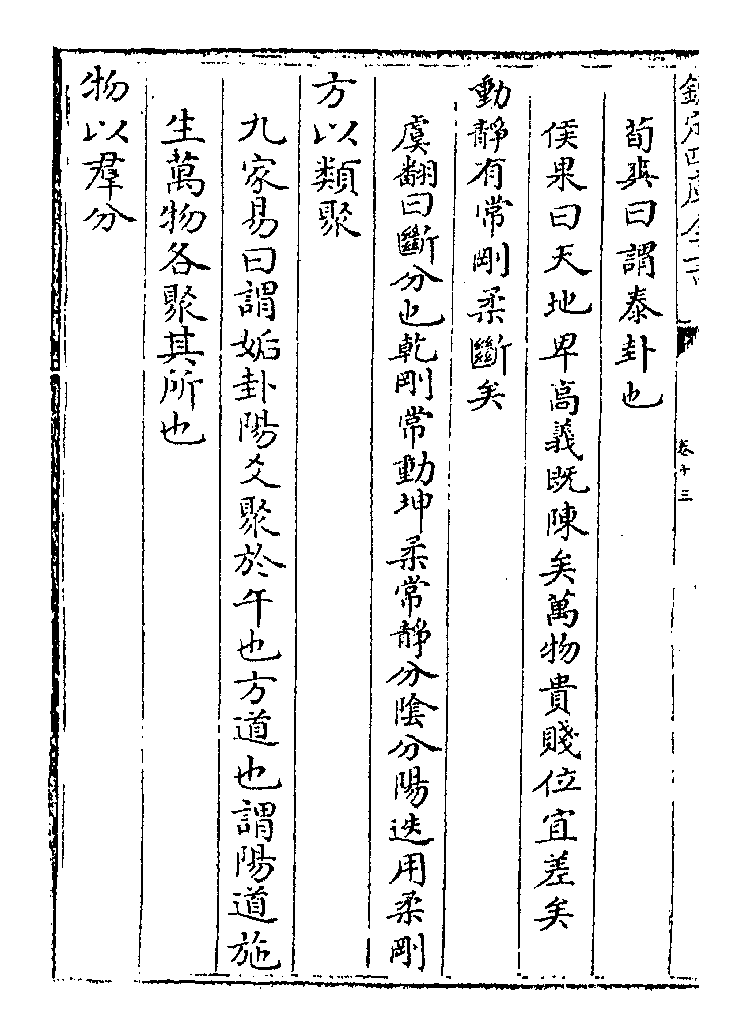 欽定四庫全書
卷十三
荀爽曰謂泰卦也
侯果曰天地卑高義既陳矣萬物貴賤位宜差矣
動靜有常剛柔斷矣
虞翻曰斷分也乾剛常動坤柔常靜分陰分陽迭用柔剛
方以類聚
九家易曰謂姤卦陽爻聚於午也方道也謂陽道施
生萬物各聚其所也
物以羣分